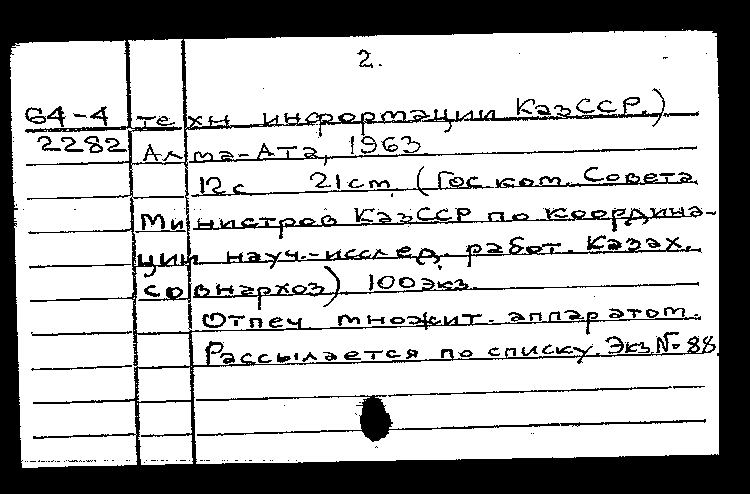 2.
64-4 техн информации КазССР.)
2282 Алма-Ата, 1963
12с 21см (Гос ком. Совета
Министров КазССР по координа-
ции науч.-исслед. работ. Казах.
совнархоз) 100экз.
Отпеч множит. аппаратом.
Рассылается по списку. Экз № 88